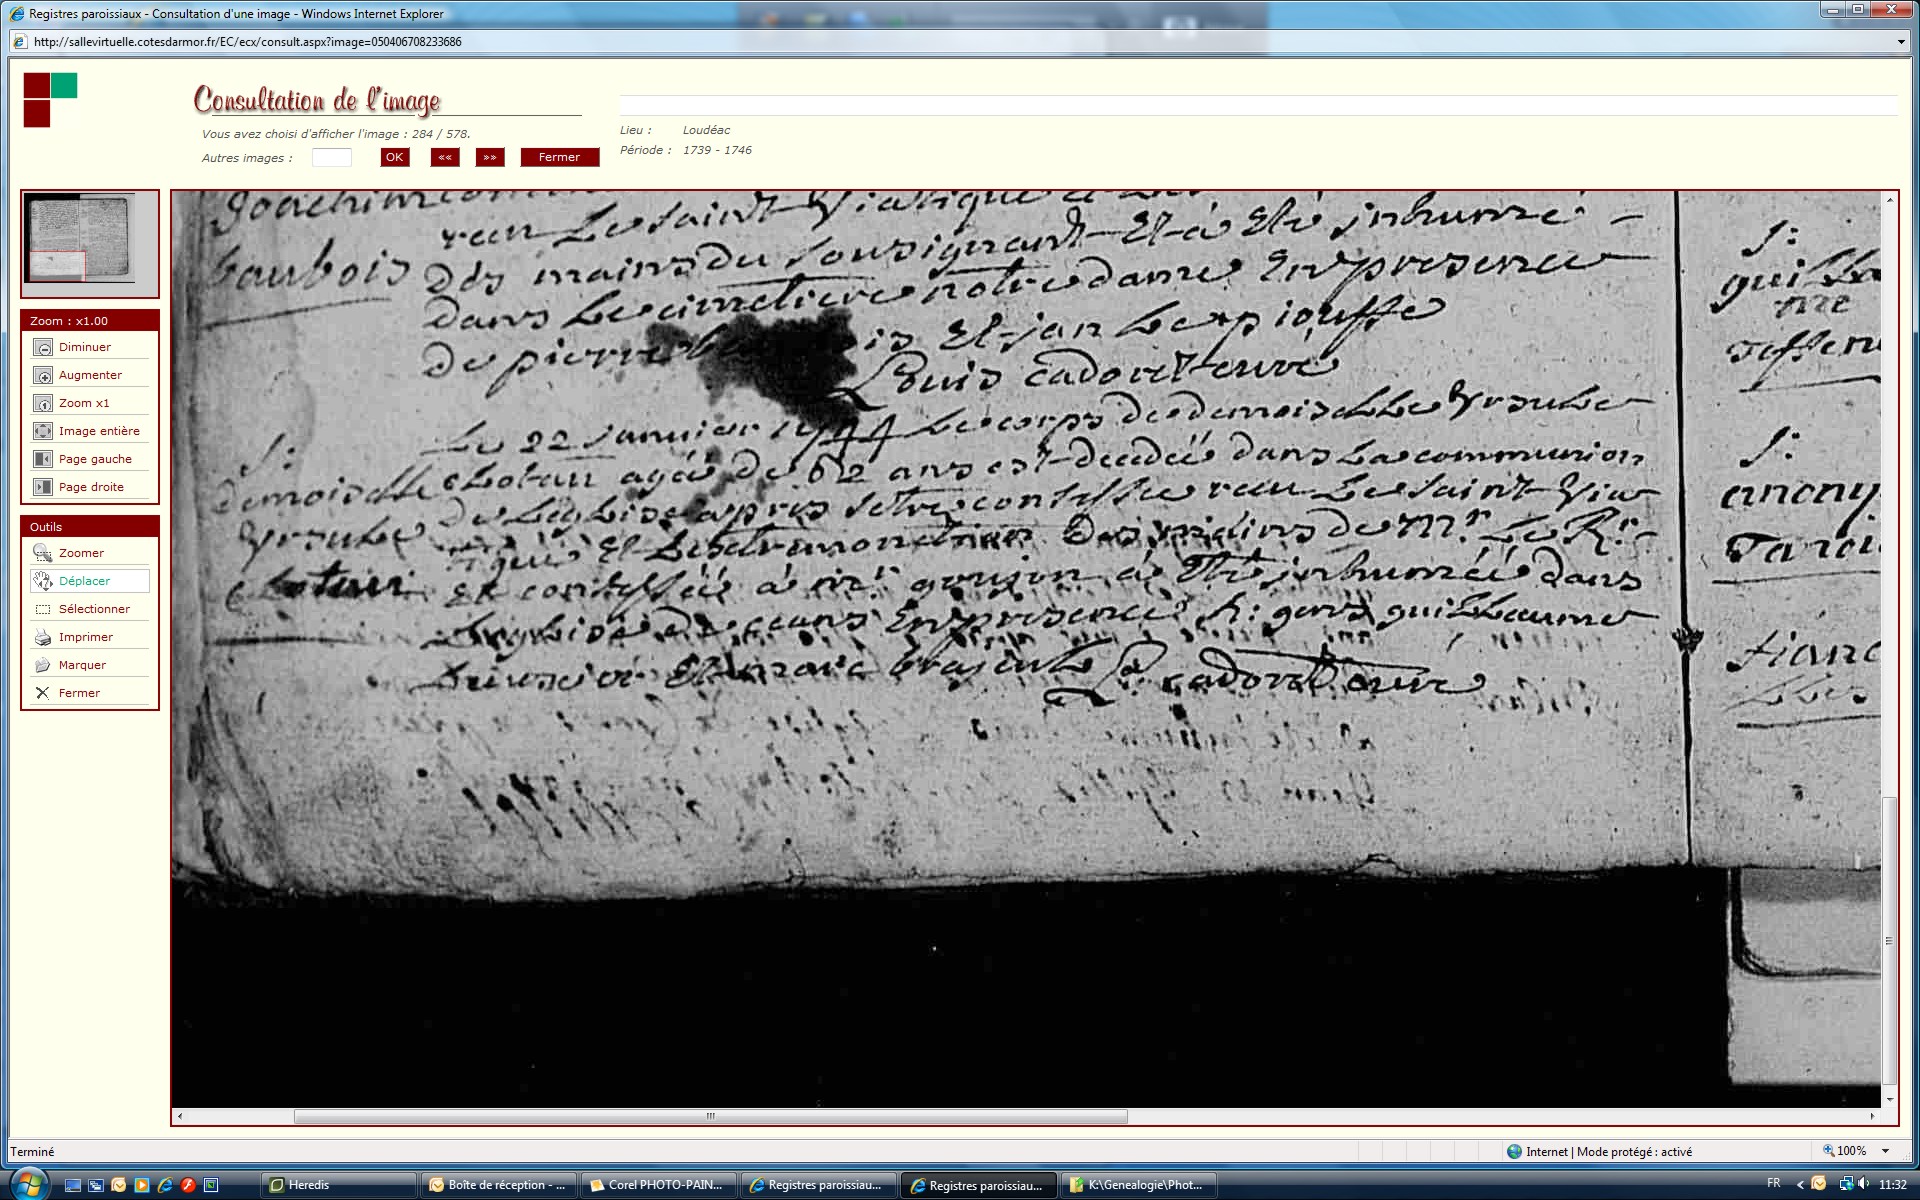 Registres paroissiaux - Consultation d'une image - Windows Internet Explorer
http://sallevirtuelle.cotesdarmor.fr/EC/ecx/consult.aspx?image=050406708233686
Consultation de l'image
Vous avez choisi d'afficher l'image : 284 / 578.
Autres images :
OK
««
»»
Fermer
Lieu : Loudéac
Période : 1739 - 1746
Zoom : x1.00
Diminuer
Augmenter
Zoom x1
Image entière
Page gauche
Page droite
Outils
Zoomer
Déplacer
Sélectionner
Imprimer
Marquer
Fermer
Joachim
baubois
le saint Viatique
des mains du sousignant Et a Eté inhumé
dans le cimetiere notre dame En presence
de pierre is Et jan le piouffe
Louis cadoret curé
S:
demoiselle
Ursule
Le 22 janvier 1744 Le corps de demoiselle Ursule
agée de 62 ans est decedée dans La communion
de Leglise apres setre confessée recu Le saint Via
tique Et Lextremonction Des mains de Mr. Le Rr.
Et confessée à mr. goujon a Eté inhumée dans
Leglise de ceans En presence h: gens guillaume
Et marc cadoret curé
S:
guillau
me
S:
anony
Terminé
Internet | Mode protégé : activé
100%
Heredis
Boîte de réception - ...
Corel PHOTO-PAIN...
Registres paroissiau...
Registres paroissiau...
K:\Genealogie\Phot...
FR
11:32